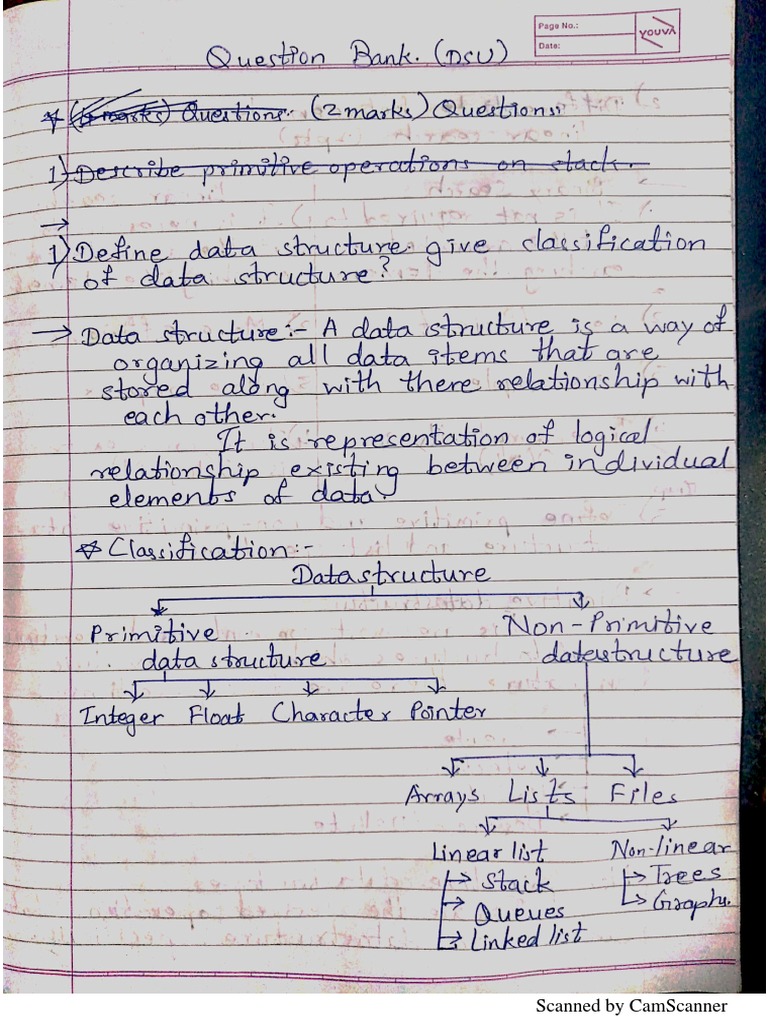 Page No.:
Date:
YOUVA
Question Bank. (DSU)
(2 marks) Questions:
1) Describe primitive operations on stack.
1) Define data structure give classification
of data structure?
→ Data structure:- A data structure is a way of
organizing all data items that are
stored along with there relationship with
each other.
It is representation of logical
relationship existing between individual
elements of data.
☆ Classification:-
Datastructure
Primitive
data structure
Non-Primitive
datastructure
Integer Float Character Pointer
Arrays Lists Files
Linear list
Stack
Queues
Linked list
Non-linear
Trees
Graphs.
Scanned by CamScanner